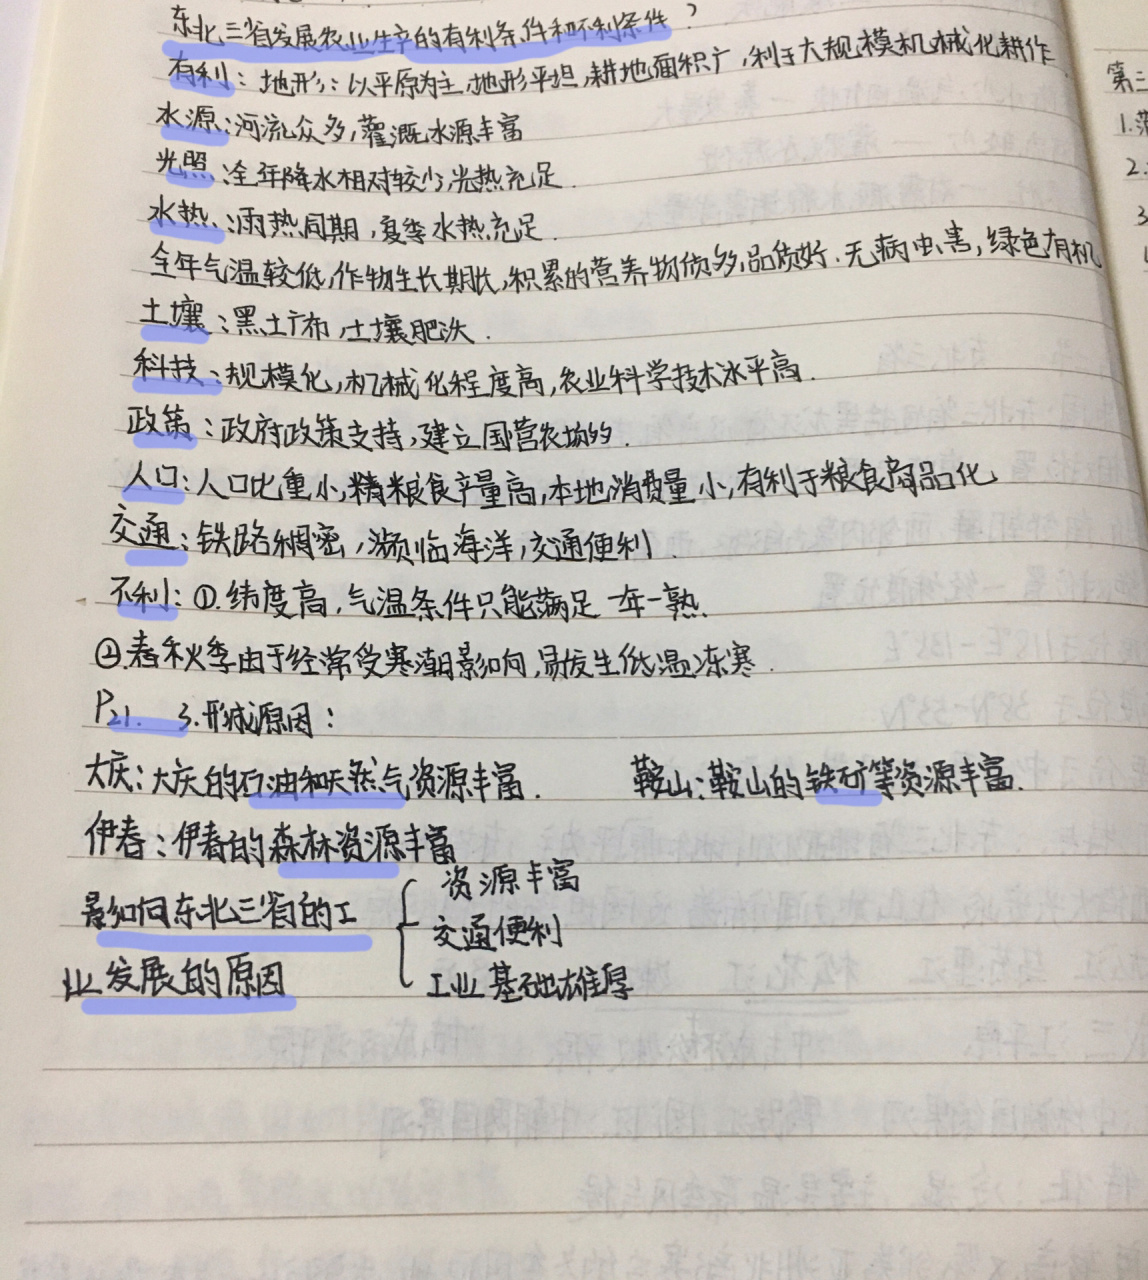 东北三省发展农业生产的有利条件和不利条件?
有利:地形:以平原为主,地形平坦,耕地面积广,利于大规模机械化耕作
水源:河流众多,灌溉水源丰富
光照:全年降水相对较少,光热充足.
水热:雨热同期,夏季水热充足.
全年气温较低,作物生长期长,积累的营养物质多,品质好.无病虫害,绿色有机
土壤:黑土广布,土壤肥沃.
科技:规模化,机械化程度高,农业科学技术水平高.
政策:政府政策支持,建立国营农场多.
人口:人口比重小,精粮食产量高,本地消费量小,有利于粮食商品化
交通:铁路稠密,濒临海洋,交通便利.
不利:①.纬度高,气温条件只能满足一年一熟.
②.春秋季由于经常受寒潮影响,易发生低温冻害.
P21. 3.形成原因:
大庆:大庆的石油和天然气资源丰富. 鞍山:鞍山的铁矿等资源丰富.
伊春:伊春的森林资源丰富
资源丰富
影响东北三省的工
交通便利
业发展的原因
工业基础雄厚
第三
1.
2.
3